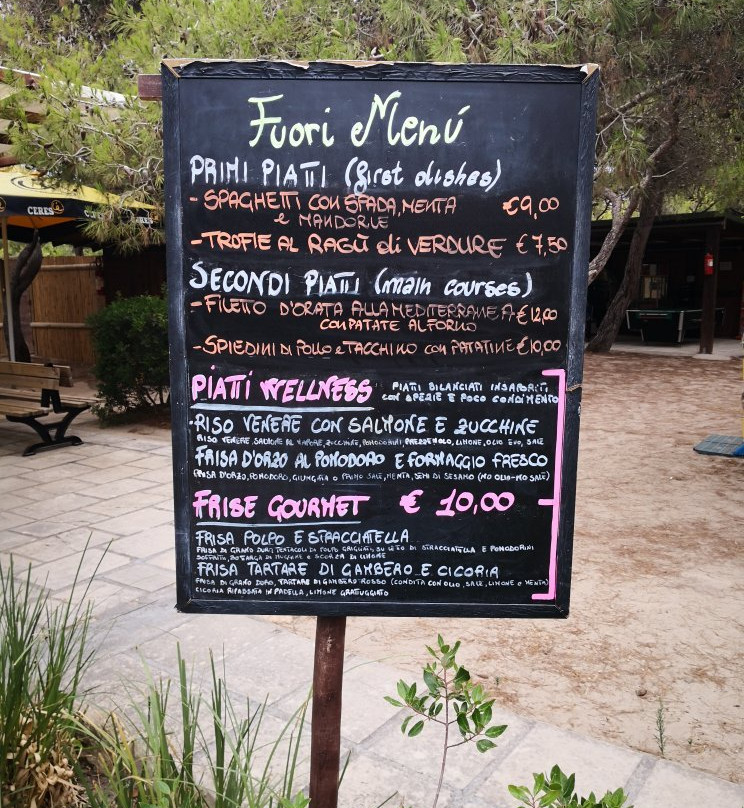 CERES
CERES
Fuori Menú
PRIMI PIATTI (first dishes)
- SPAGHETTI CON SPADA, MENTA €9,00
e MANDORLE
- TROFIE AL RAGÙ di VERDURE €7,50
SECONDI PIATTI (main courses)
- FILETTO D'ORATA ALLA MEDITERRANEA €12,00
CON PATATE AL FORNO
- SPIEDINI DI POLLO e TACCHINO CON PATATINE €10,00
PIATTI WELLNESS PIATTI BILANCIATI INSAPORITI
CON SPEZIE E POCO CONDIMENTO
· RISO VENERE CON SALMONE E ZUCCHINE
RISO VENERE, SALMONE AL VAPORE, ZUCCHINE, POMODORINI, PREZZEMOLO, LIMONE, OLIO EVO, SALE
FRISA D'ORZO AL POMODORO E FORMAGGIO FRESCO
(FRISA D'ORZO, POMODORO, GIUNCATA O PRIMO SALE, MENTA, SEMI DI SESAMO (NO OLIO-NO SALE)
FRISE GOURMET € 10,00
FRISA POLPO E STRACCIATELLA
FRISA DI GRANO DURO, TENTACOLI DI POLPO GRIGLIATI, SU LETTO DI STRACCIATELLA E POMODORINI
SOFFRITTI, BOTARGA DI MUGGINE E SCORZA DI LIMONE
FRISA TARTARE DI GAMBERO E CICORIA
FRISA DI GRANO DURO, TARTARE DI GAMBERO ROSSO (CONDITA CON OLIO, SALE, LIMONE e MENTA)
CICORIA RIPASSATA IN PADELLA, LIMONE GRATTUGIATO